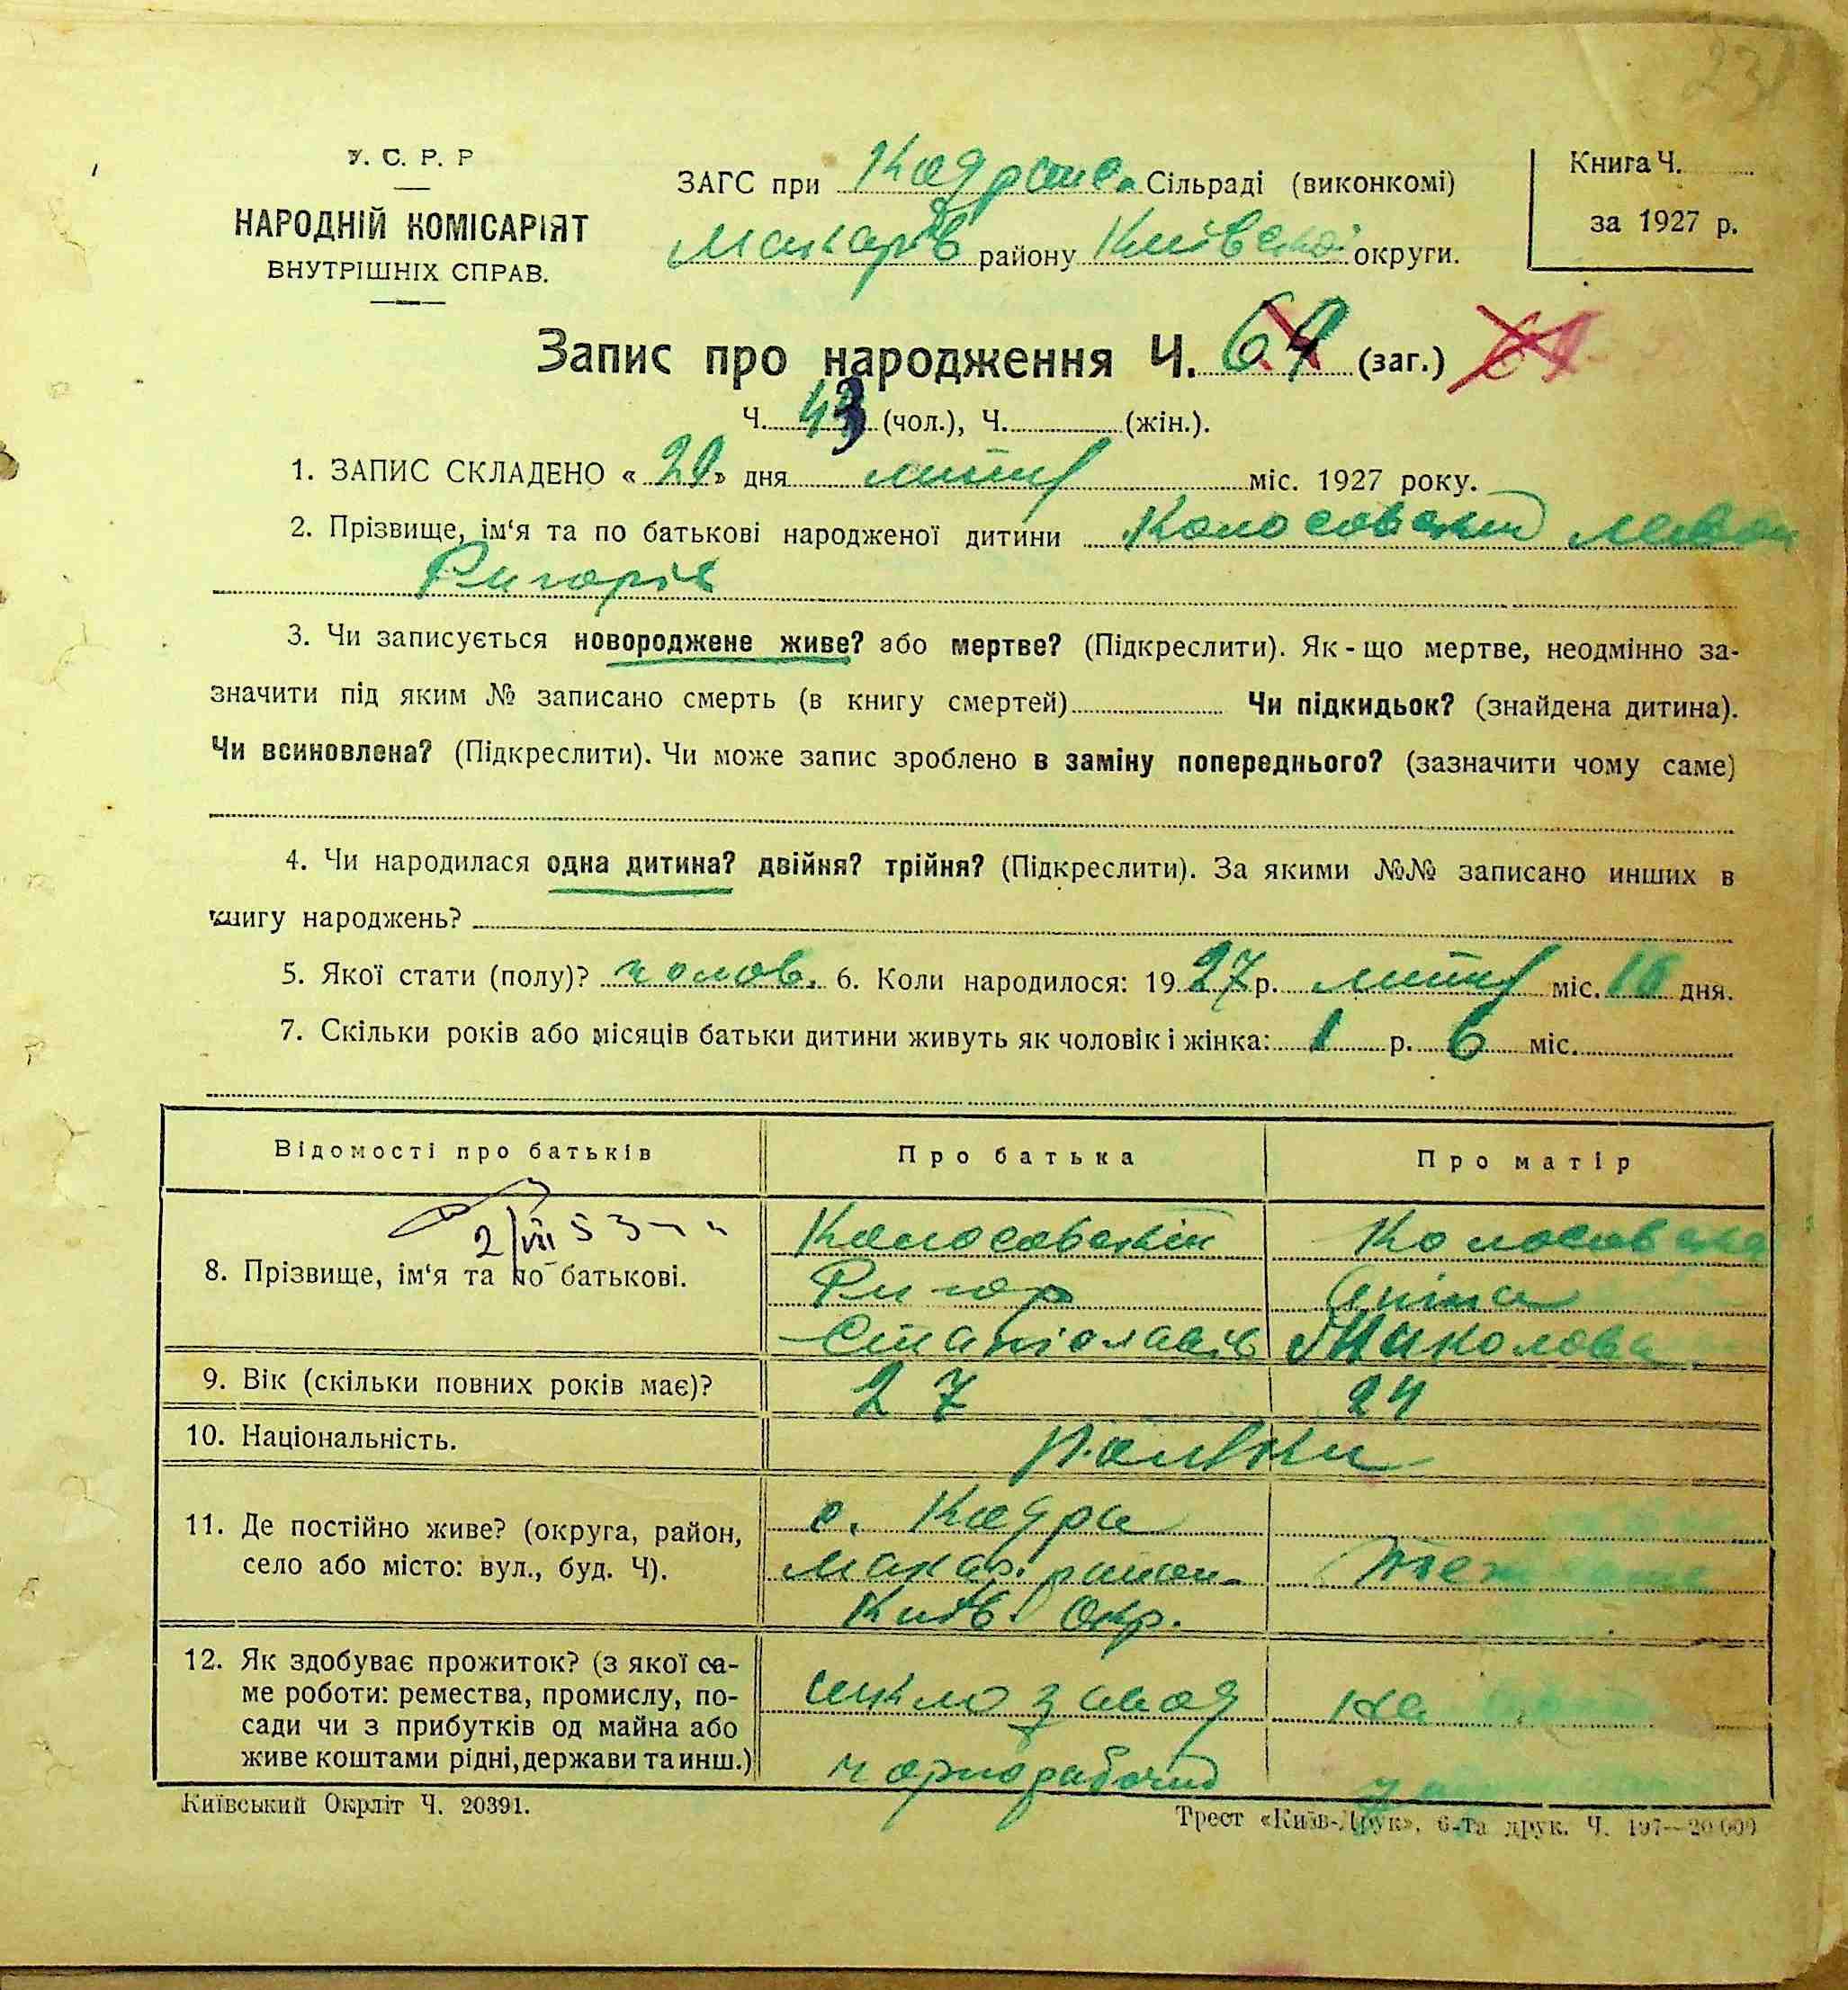 231
У. С. Р. Р
НАРОДНІЙ КОМІСАРІЯТ
ВНУТРІШНІХ СПРАВ.
ЗАГС при Кодранс. Сільраді (виконкомі)
Макарів району Київської округи.
Книга Ч.
за 1927 р.
Запис про народження Ч. 64 (заг.) 64
Ч. 43 (чол.), Ч. (жін.).
1. ЗАПИС СКЛАДЕНО « 29 » дня липня міс. 1927 року.
2. Прізвище, ім‘я та по батькові народженої дитини Колосовский Левон
Ригорів
3. Чи записується новороджене живе? або мертве? (Підкреслити). Як-що мертве, неодмінно за-
значити під яким № записано смерть (в книгу смертей) Чи підкидьок? (знайдена дитина).
Чи всиновлена? (Підкреслити). Чи може запис зроблено в заміну попереднього? (зазначити чому саме)
4. Чи народилася одна дитина? двійня? трійня? (Підкреслити). За якими №№ записано инших в
книгу народжень?
5. Якої стати (полу)? чолов. 6. Коли народилося: 1927 р. липня міс. 16 дня.
7. Скільки років або місяців батьки дитини живуть як чоловік і жінка: 1 р. 6 міс.
Відомості про батьків Про батька Про матір
2/VII 53
8. Прізвище, ім‘я та по батькові.
Колосовський Колосовська
Ригор Аніна
Станіславів Миколова
9. Вік (скільки повних років має)? 27 24
10. Національність. Поляки
11. Де постійно живе? (округа, район,
село або місто: вул., буд. Ч).
с. Кодра
Макар. район Теж
Київ. Окр.
12. Як здобуває прожиток? (з якої са-
ме роботи: ремества, промислу, по-
сади чи з прибутків од майна або
живе коштами рідні, держави та инш.)
шкло завод На
чорнорабочий
Київський Окрліт Ч. 20391.
Трест «Київ-Друк». 6-та друк. Ч. 197—20.000